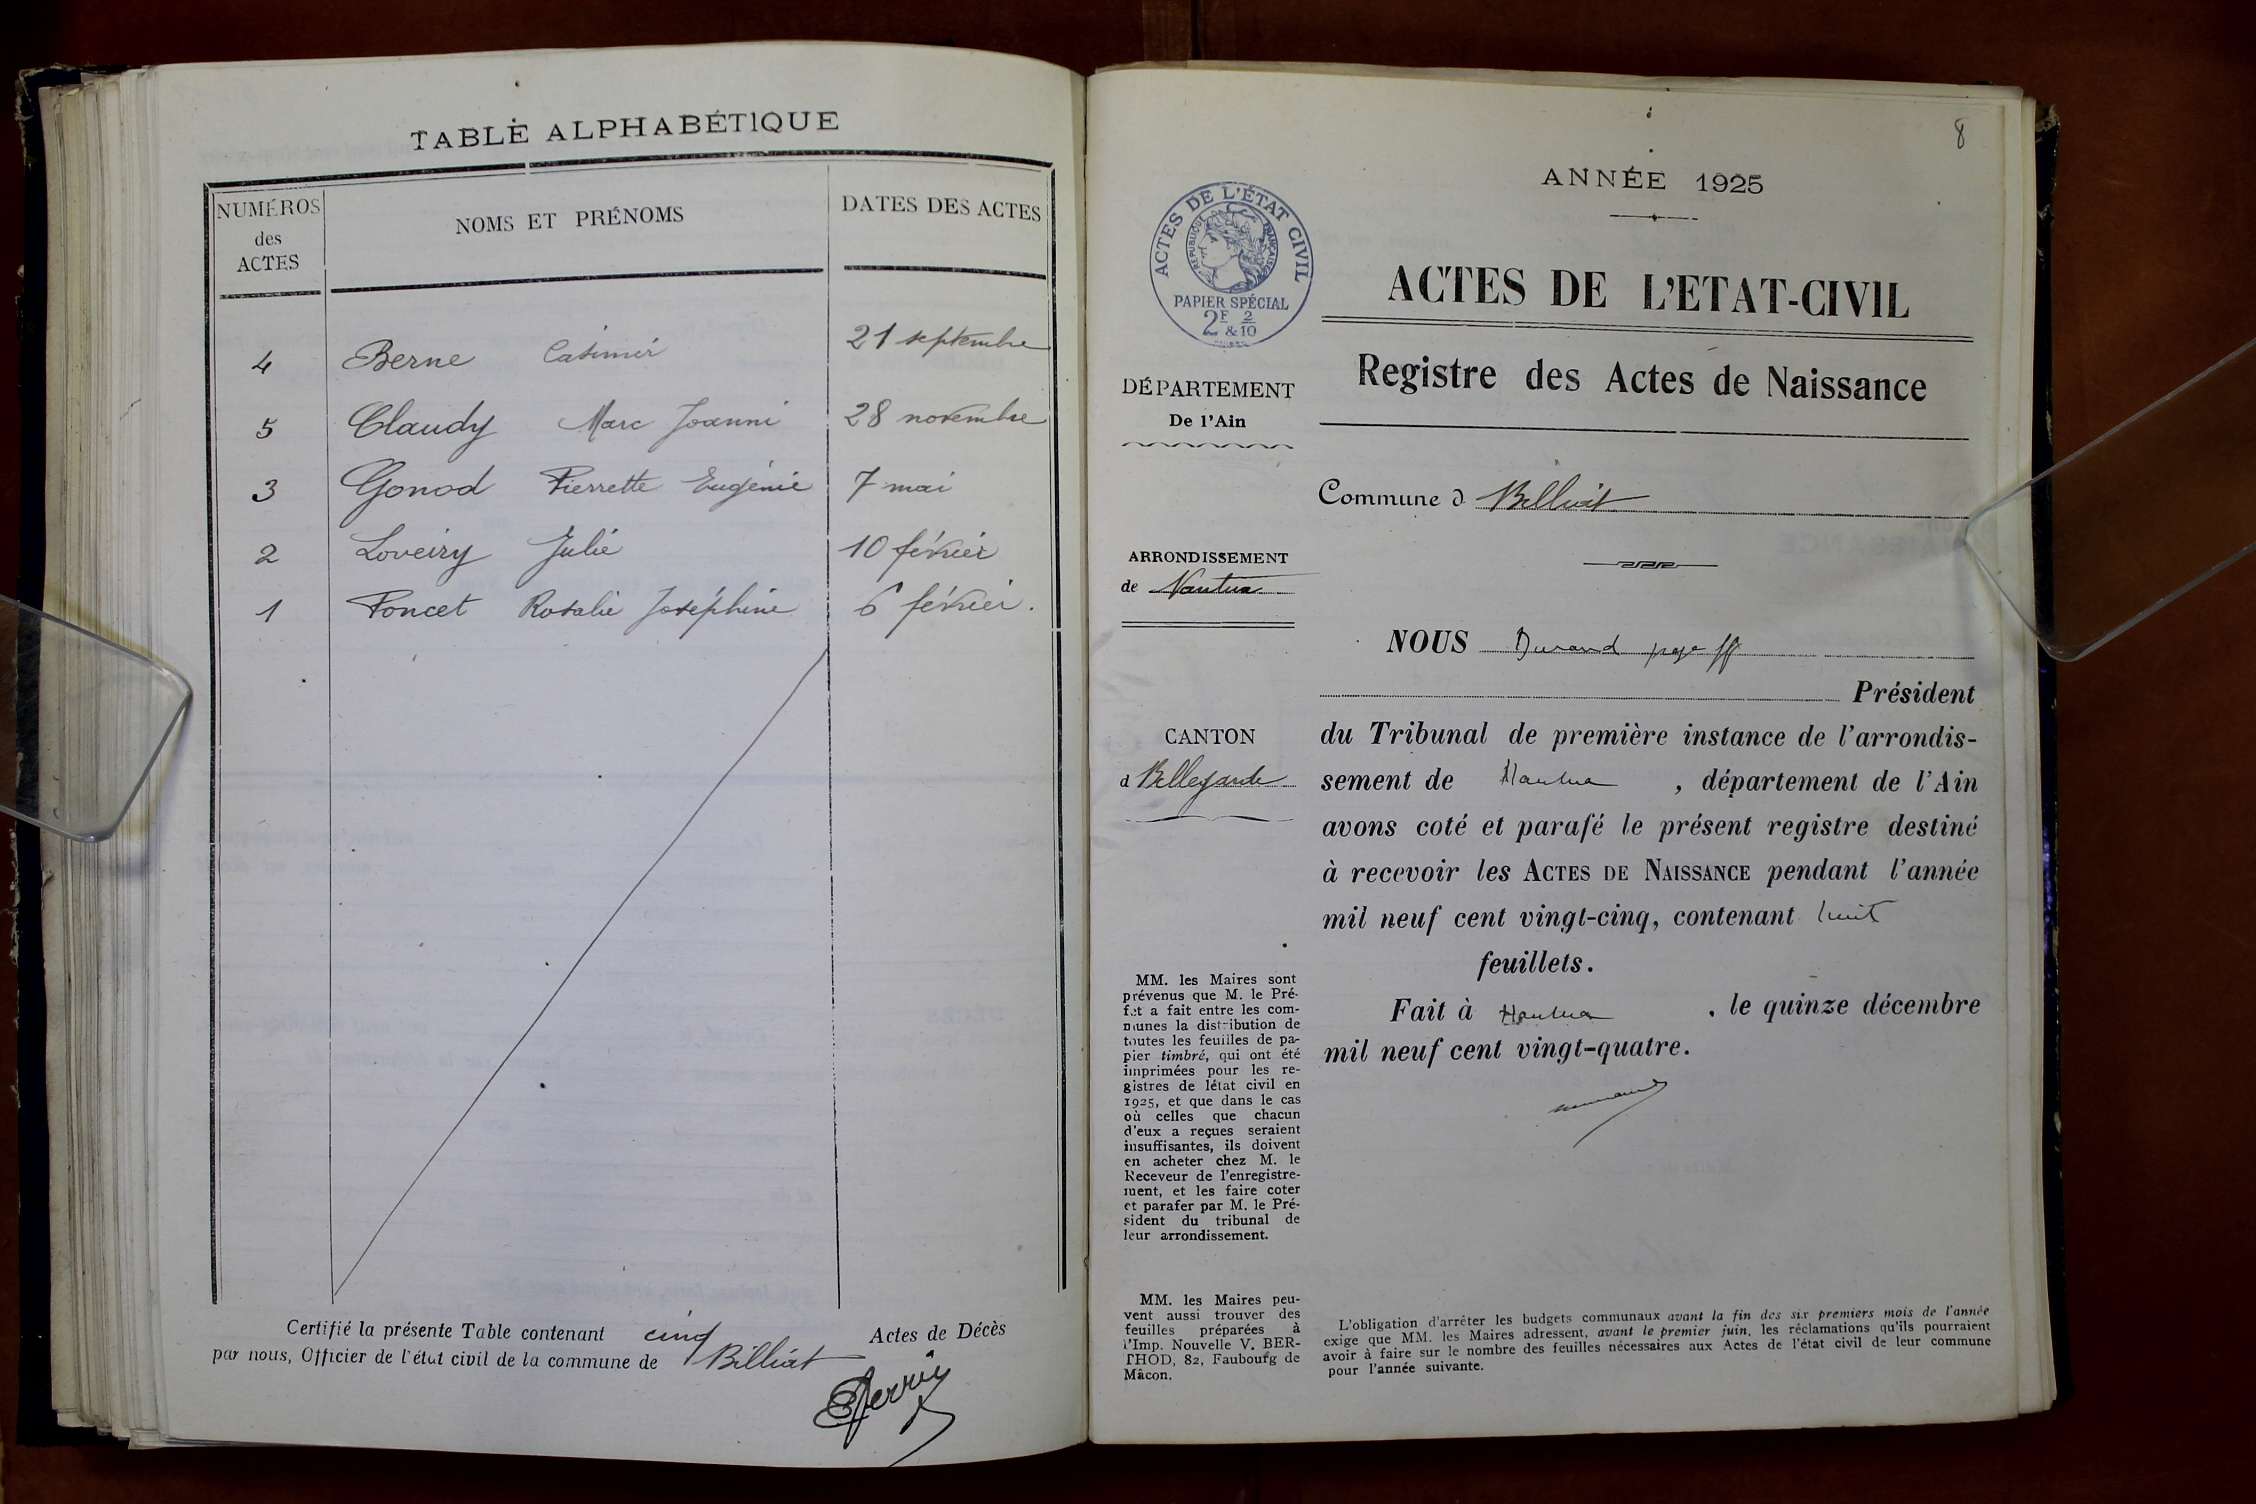 TABLE ALPHABÉTIQUE
NUMÉROS des ACTES NOMS ET PRÉNOMS DATES DES ACTES
4 Berne Casimir 21 septembre
5 Claudy Marc Joanni 28 novembre
3 Gonod Pierrette Eugénie 7 mai
2 Loveiry Julie 10 février
1 Poncet Rosalie Joséphine 6 février.
Certifié la présente Table contenant cinq Actes de Décès
par nous, Officier de l'état civil de la commune de Billiat
8
ANNÉE 1925
ACTES DE L'ÉTAT CIVIL
RÉPUBLIQUE FRANÇAISE
PAPIER SPÉCIAL
2F & 2/10
ACTES DE L'ETAT-CIVIL
Registre des Actes de Naissance
DÉPARTEMENT
De l'Ain
Commune d Billiat
ARRONDISSEMENT
de Nantua
CANTON
d Bellegarde
NOUS Durand juge ff
Président
du Tribunal de première instance de l'arrondis-
sement de Nantua, département de l'Ain
avons coté et parafé le présent registre destiné
à recevoir les ACTES DE NAISSANCE pendant l'année
mil neuf cent vingt-cinq, contenant huit
feuillets.
Fait à Nantua, le quinze décembre
mil neuf cent vingt-quatre.
MM. les Maires sont
prévenus que M. le Pré-
fet a fait entre les com-
munes la distribution de
toutes les feuilles de pa-
pier timbré, qui ont été
imprimées pour les re-
gistres de létat civil en
1925, et que dans le cas
où celles que chacun
d'eux a reçues seraient
insuffisantes, ils doivent
en acheter chez M. le
Receveur de l'enregistre-
ment, et les faire coter
et parafer par M. le Pré-
sident du tribunal de
leur arrondissement.
MM. les Maires peu-
vent aussi trouver des
feuilles préparées à
l'Imp. Nouvelle V. BER-
THOD, 82, Faubourg de
Mâcon.
L'obligation d'arrêter les budgets communaux avant la fin des six premiers mois de l'année
exige que MM. les Maires adressent, avant le premier juin, les réclamations qu'ils pourraient
avoir à faire sur le nombre des feuilles nécessaires aux Actes de l'état civil de leur commune
pour l'année suivante.